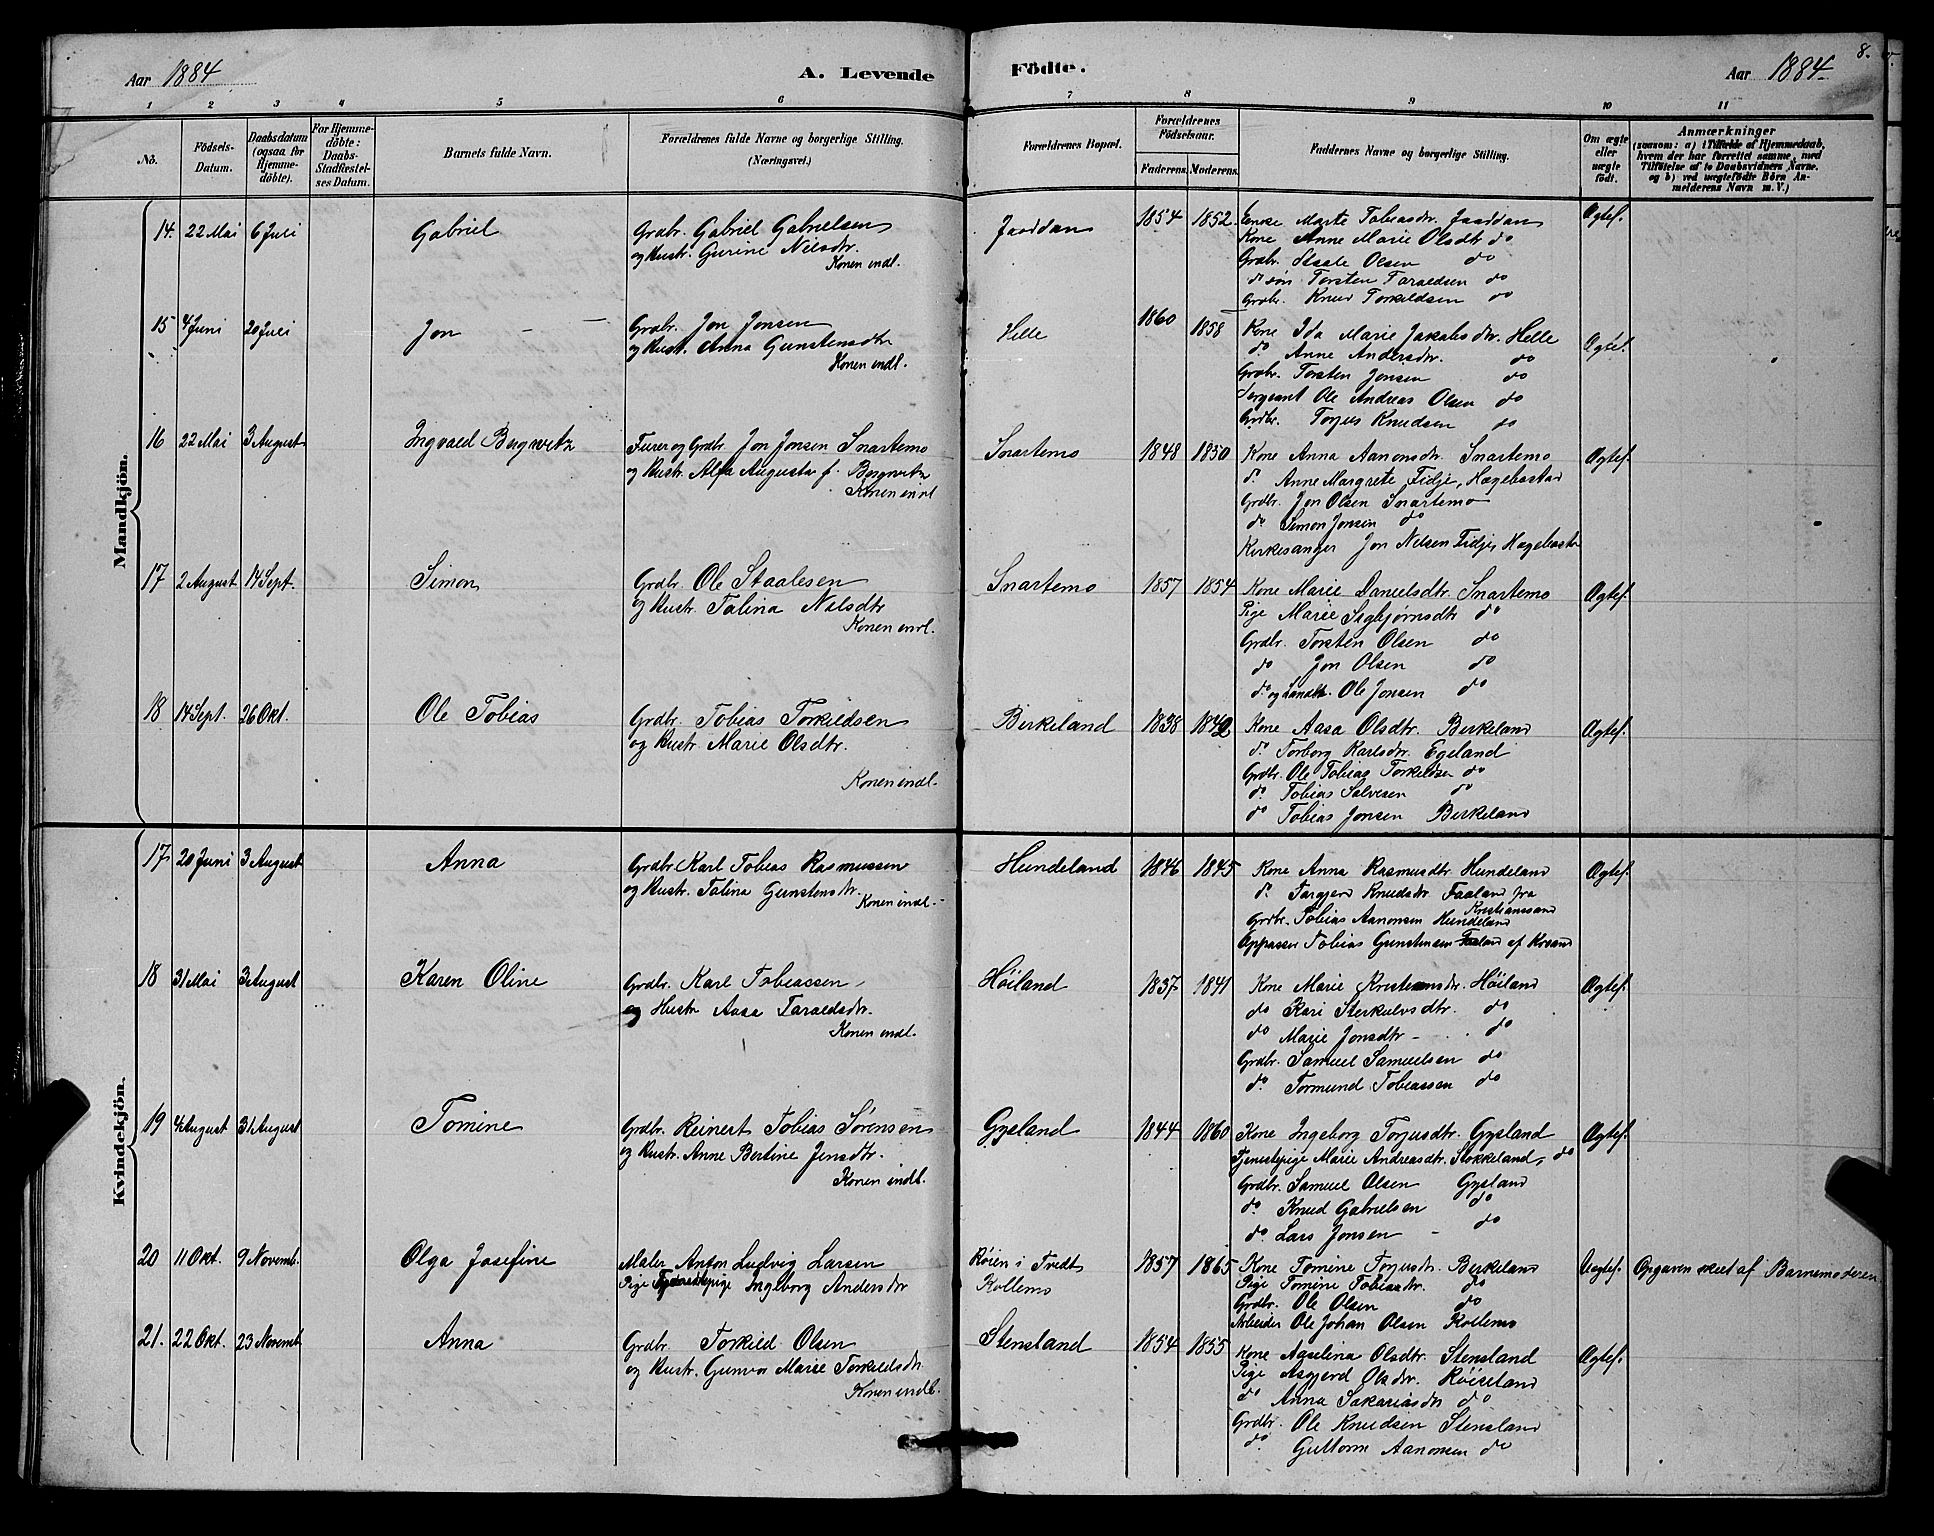 Aar 1884
A. Levende Födte.
Aar 1884
8.
1 2 3 4 5 6 7 8 9 10 11
No.
Födsels-Datum.
Daabsdatum (ogsaa for Hjemme-döbte).
For Hjemme-döbte: Daabs-Stadfæstel-ses Datum.
Barnets fulde Navn.
Forældrenes fulde Navne og borgerlige Stilling. (Næringsvei.)
Forældrenes Bopæl.
Forældrenes Födselsaar.
Faderens. Moderens.
Faddernes Navne og borgerlige Stilling.
Om ægte eller uægte födt.
Anmærkninger
(saasom: a) i Tilfælde af Hjemmedaab, hvem der har forrettet samme, med Tilföielse af to Daabsvidners Navne. og b) ved uægtefödte Börn An-melderens Navn m. V.)
Mandkjön.
14. 22 Mai 6 Juli Gabriel
Grdbr. Gabriel Gabrielsen
og Hustr. Gurine Nilsdtr.
Konen indl.
Jaaddan 1854 1852.
Enke Marte Tobiasdtr. Jaaddan
Kone Anne Marie Olsdtr do
Grdbr. Staale Olsen do
do søn Torsten Taraldsen do
Grdbr. Knud Torkildsen do
Ægtef.
15 4 Juni 20 Juli Jon
Grdbr. Jon Jonsen
og Hustr. Anna Gunstensdtr
Konen indl.
Helle 1860 1858
Kone Ida Marie Jakobsdtr. Helle
do Anne Andersdtr. do
Grdbr. Torsten Jonsen do
Sergeant Ole Andreas Olsen do
Grdbr. Torjus Knudsen do
Ægtef.
16 22 Mai 3 August Ingvald Bergwitz
Furer og Grdbr. Jon Jonsen Snartemo
og Hustr. Alfa Augusta f. Bergwitz
Konen indl
Snartemo 1848 1850
Kone Anna Aanonsdtr. Snartemo
do Anne Margrete Fidje, Hægebostad
Grdbr. Jon Olsen Snartemo
do Simon Jonsen do
Kirkesanger Jon Nilsen Fidje, Hægebostad
Ægtef.
17 2 August 14 Sept. Simon
Grdbr. Ole Staalesen
og Hustr. Talina Nilsdtr
Konen indl.
Snartemo 1857 1854
Kone Marie Danielsdtr. Snartemo
Pige Marie Sigbjørnsdtr do
Grdbr. Torsten Olsen do
do Jon Olsen do
do og Landh. Ole Jonsen do
Ægtef.
18 14 Sept. 26 Okt. Ole Tobias
Grdbr. Tobias Torkildsen
og Hustr. Marie Olsdtr.
Konen indl.
Birkeland 1838 1842
Kone Aasa Olsdtr. Birkeland
do Torborg Karlsdtr. Egeland
Grdbr. Ole Tobias Torkildsen do
do Tobias Salvesen do
do Tobias Jonsen Birkeland
Ægtef.
Kvindekjön.
17 20 Juni 3 August Anna
Grdbr. Karl Tobias Rasmussen
og Hustr. Talina Gunstensdtr.
Konen indl.
Hundeland 1846 1845
Kone Anna Rasmusdtr. Hundeland
do Targjerd Knudsdtr Faaland fra Kristianssand
Grdbr. Tobias Aanonsen Hundeland
Oppasser Tobias Gunstensen Faaland af Krsand
Ægtef.
18 31 Mai 3 August Karen Oline
Grdbr. Karl Tobiassen
og Hustr Aasa Taraldsdtr.
Konen indl.
Høiland 1837 1841
Kone Marie Kristensdtr. Høiland
do Kari Sterkulvsdtr. do
do Marie Jonsdtr - do
Grdbr. Samuel Samuelsen do
do Tormund Tobiassen do
Ægtef.
19 4 August 31 August Tomine
Grdbr. Reinert Tobias Sørensen
og Hustr. Anne Bertine Jensdtr.
Konen indl.
Gysland 1844 1860
Kone Ingeborg Torjusdtr. Gysland
Tjenestepige Marie Andreasdtr. Stokkeland, do
Grdbr. Samuel Olsen Gysland
do Knud Gabrielsen do
do Lars Jonsen - do
Ægtef.
20 11 Okt. 9 Novemb. Olga Josefine
Maler Anton Ludvig Larsen
Pige Ingeborg Andersdtr
Røien i Tvedt
Kollemo
1857 1865
Kone Tomine Torjusdtr. Birkeland
Pige Tomine Tobiasdtr. do
Grdbr. Ole Olsen do
Arbeider Ole Johan Olsen Kollemo
Uægtef. Opgaven skeet af Barnemoderen
21. 22 Okt. 23 Novemb Anna
Grdbr Torkild Olsen
og Hustr. Gunvor Marie Torkildsdtr.
Konen indl.
Stensland 1854 1855
Kone Aaselina Olsdtr. Stensland
Pige Asgjerd Olsdtr. Røiseland
do Anna Sakariasdtr do
Grdbr. Ole Knudsen Stensland
do Guttorm Aanonsen do
Ægtef.